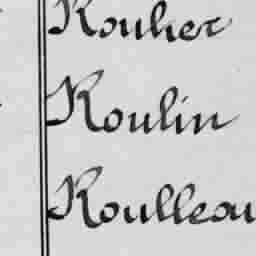 Rouher
Roulin
Roulleau